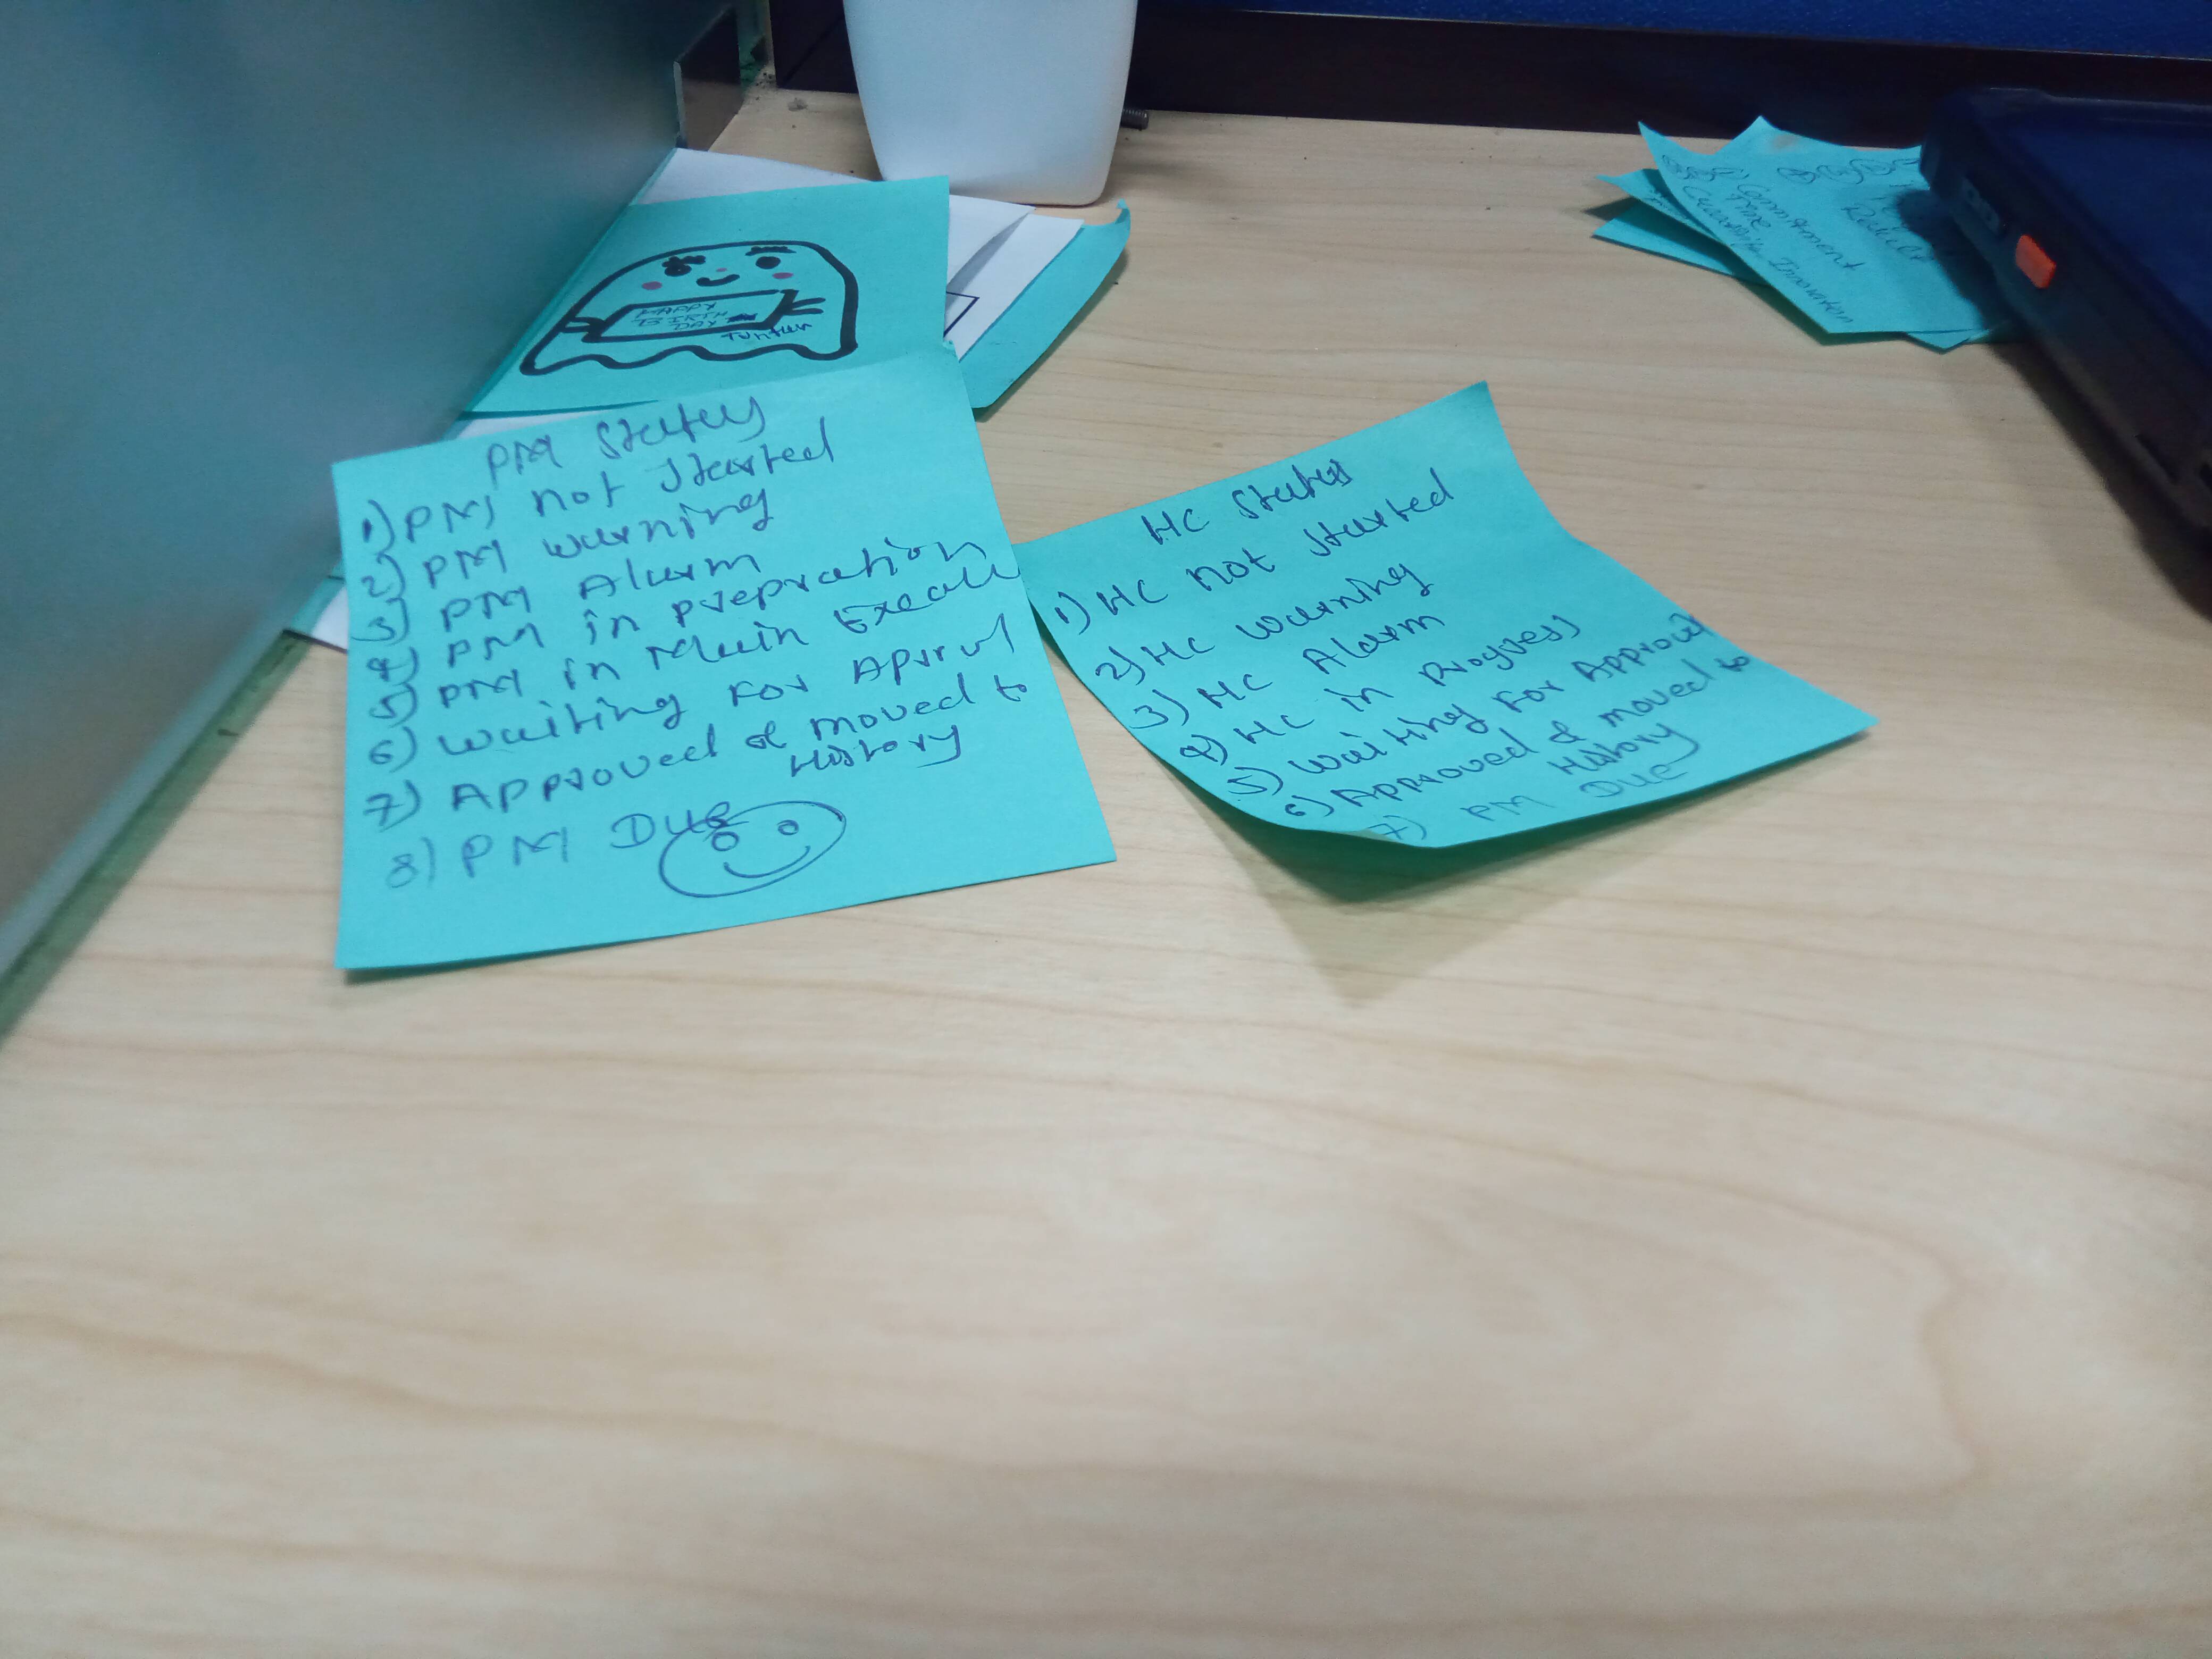 HAPPY
BIRTH
DAY
PM Status
1) PM not started
2) PM warning
3) PM Alarm
4) PM in prepration
5) PM in Main
6) waiting For Aprrul
7) Approved & moved to
History
8) PM DUE
HC Status
1) HC not started
2) HC warning
3) HC Alarm
4) HC in Progress
5) waiting For Approval
6) Approved & moved to
History
7) PM DUE
Commitment
Result